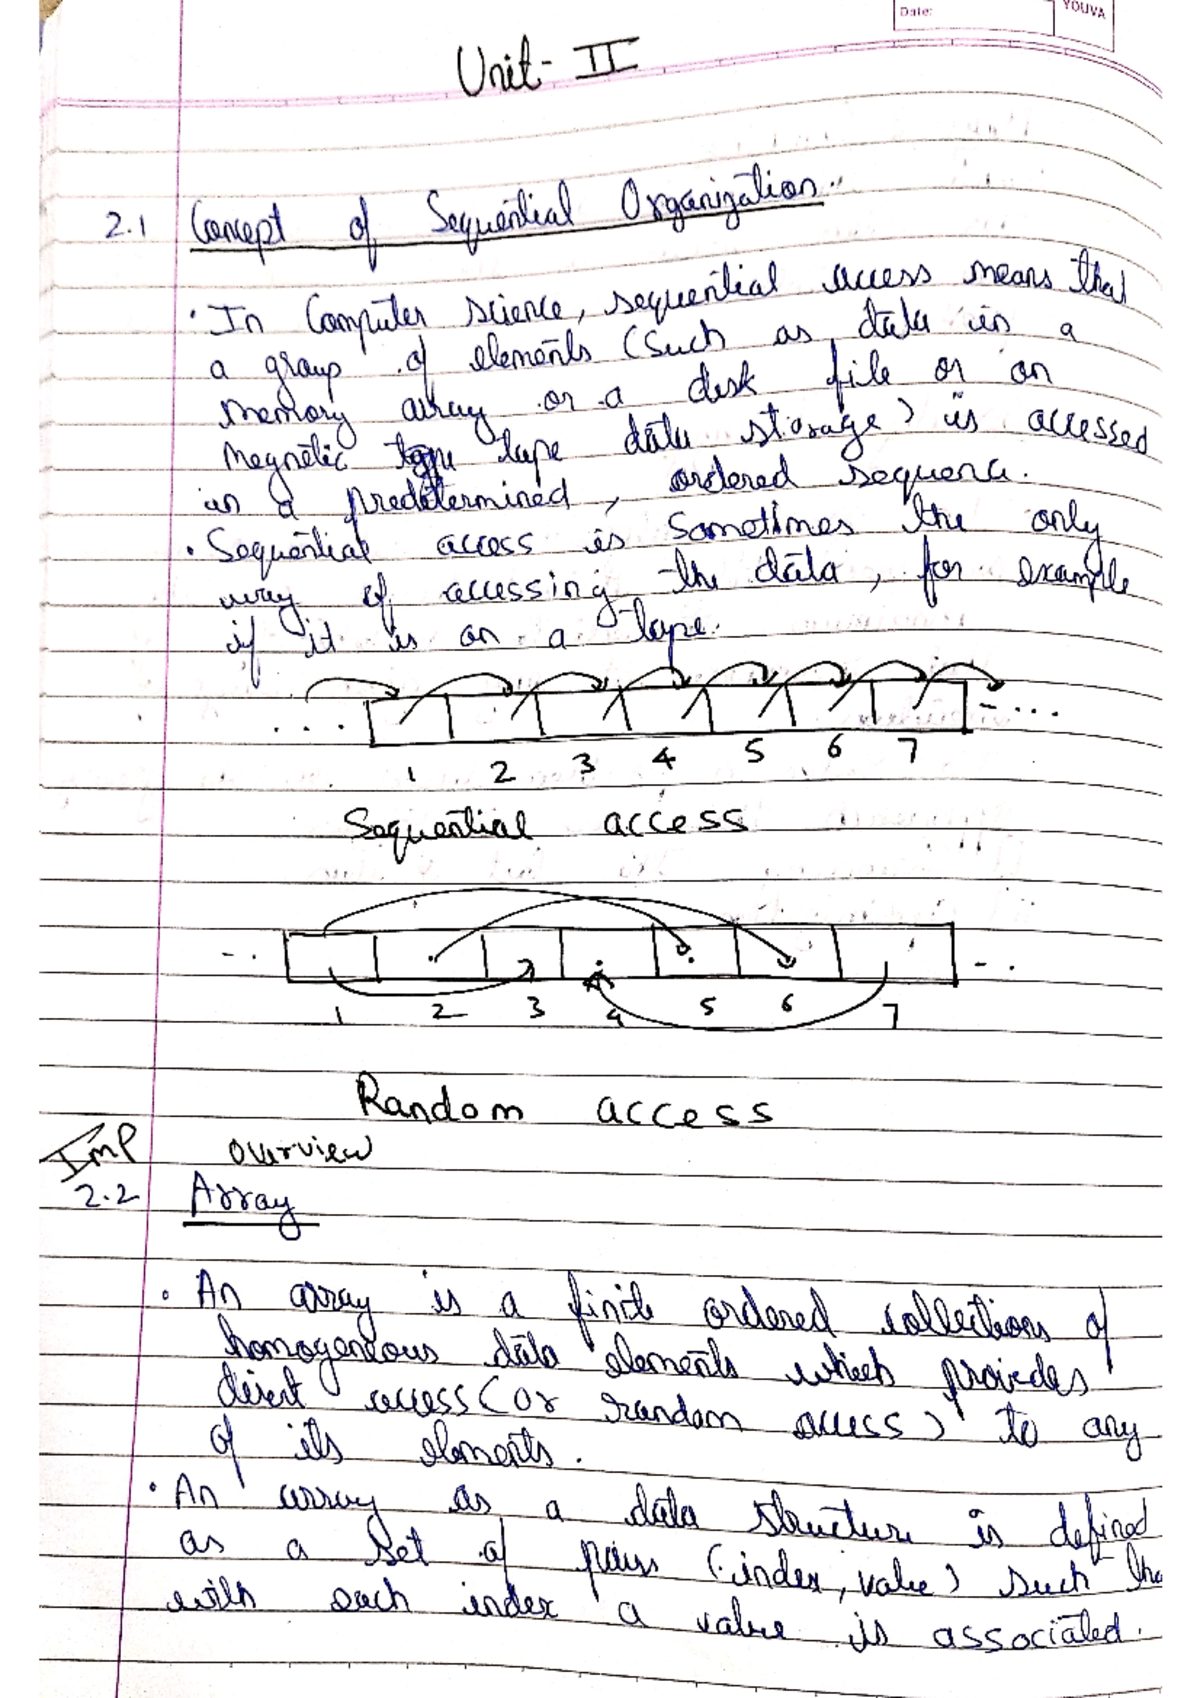 Date:
YOUVA
Unit- II
2.1 Concept of Sequential Organization.
· In Computer science, sequential access means that
a group of elements (Such as data in a
memory array or a disk file or on
magnetic tape data storage) is accessed
in a predetermined, ordered sequence.
· Sequential access is Sometimes the only
way of accessing the data, for example
if it is on a tape.
1 2 3 4 5 6 7
Sequential access
1 2 3 4 5 6 7
Random access
Imp overview
2.2 Array
· An array is a finite ordered collections of
homogeneous data elements which provides
direct access (or random access) to any
of its elements.
· An array as a data structure is defined
as a set of pairs (index, value) such tha
with each index a value is associated.